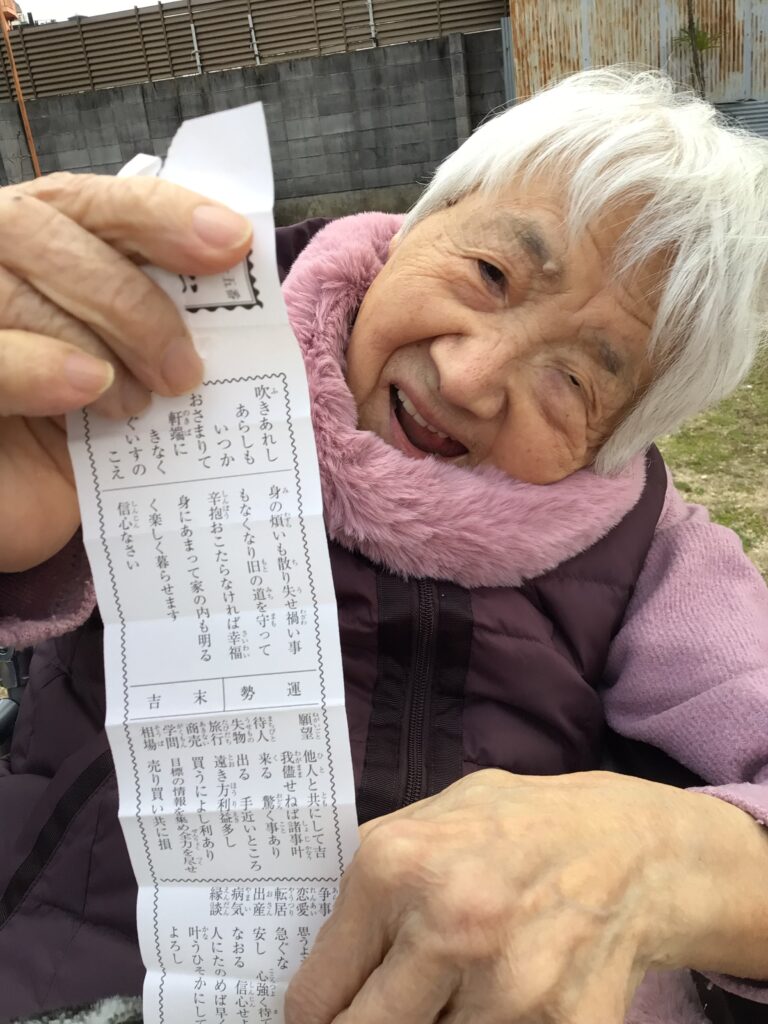 五番
吹きあれし
あらしも
いつか
おさまりて
軒端に
きなく
ぐいすの
こえ
身の煩いも散り失せ禍い事
もなくなり旧の道を守って
辛抱おこたらなければ幸福
身にあまって家の内も明る
く楽しく暮らせます
信心なさい
運勢
末吉
願望 他人と共にして吉
我儘せねば諸事叶
待人 来る 驚く事あり
失物 出る 手近いところ
旅行 遠き方利益多し
商売 買うによし利あり
学問 目標の情報を集め全力を尽せ
相場 売り買い共に損
争事 思うよ
恋愛 急ぐな
転居 安し
出産 心強く待て
病気 なおる 信心せよ
縁談 人にたのめば早く
叶うひそかにして
よろし